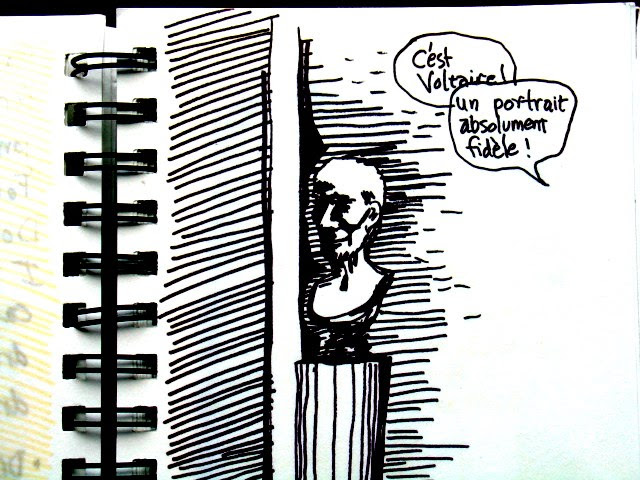 C'est
Voltaire!
un portrait
absolument
fidèle!